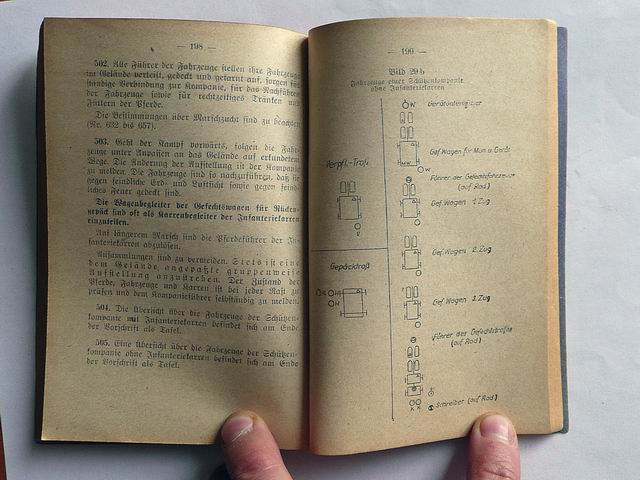 — 198 —
502. Alle Führer der Fahrzeuge stellen ihre Fahrzeuge
im Gelände verteilt, gedeckt und getarnt auf, sorgen für
ständige Verbindung zur Kompanie, für das Nachführen
der Fahrzeuge sowie für rechtzeitiges Tränken und
Füttern der Pferde.
Die Bestimmungen über Marschzucht sind zu beachten
(Nr. 632 bis 657).
503. Geht der Kampf vorwärts, folgen die Fahr-
zeuge unter Anpassen an das Gelände auf erkundetem
Wege. Die Änderung der Aufstellung ist der Kompanie
zu melden. Die Fahrzeuge sind so nachzuführen, daß sie
gegen feindliche Erd- und Luftsicht sowie gegen feind-
liches Feuer gedeckt sind.
Die Wagenbegleiter der Gefechtswagen für Rücken-
gepäck sind oft als Karrenbegleiter der Infanteriekarren
einzuteilen.
Auf längerem Marsch sind die Pferdeführer der In-
fanteriekarren abzulösen.
Ansammlungen sind zu vermeiden. Stets ist eine
dem Gelände angepaßte gruppenweise
Aufstellung anzustreben. Der Zustand der
Pferde, Fahrzeuge und Karren ist bei jeder Rast zu
prüfen und dem Kompanieführer selbständig zu melden.
504. Die Übersicht über die Fahrzeuge der Schützen-
kompanie mit Infanteriekarren befindet sich am Ende
der Vorschrift als Tafel.
505. Eine Übersicht über die Fahrzeuge der Schützen-
kompanie ohne Infanteriekarren befindet sich am Ende
der Vorschrift als Tafel.
— 199 —
Bild 29 b
Fahrzeuge einer Schützenkompanie
ohne Infanteriekarren
Gef. Wagen für Mun. u. Gerät
Führer der Gefechtsfahrzeuge
(auf Rad)
Verpfl.-Troß
Gef. Wagen 1. Zug
Gef. Wagen 2. Zug
Gepäcktroß
Gef. Wagen 3. Zug
Führer des Gefechtstroßes
(auf Rad)
Schreiber (auf Rad)